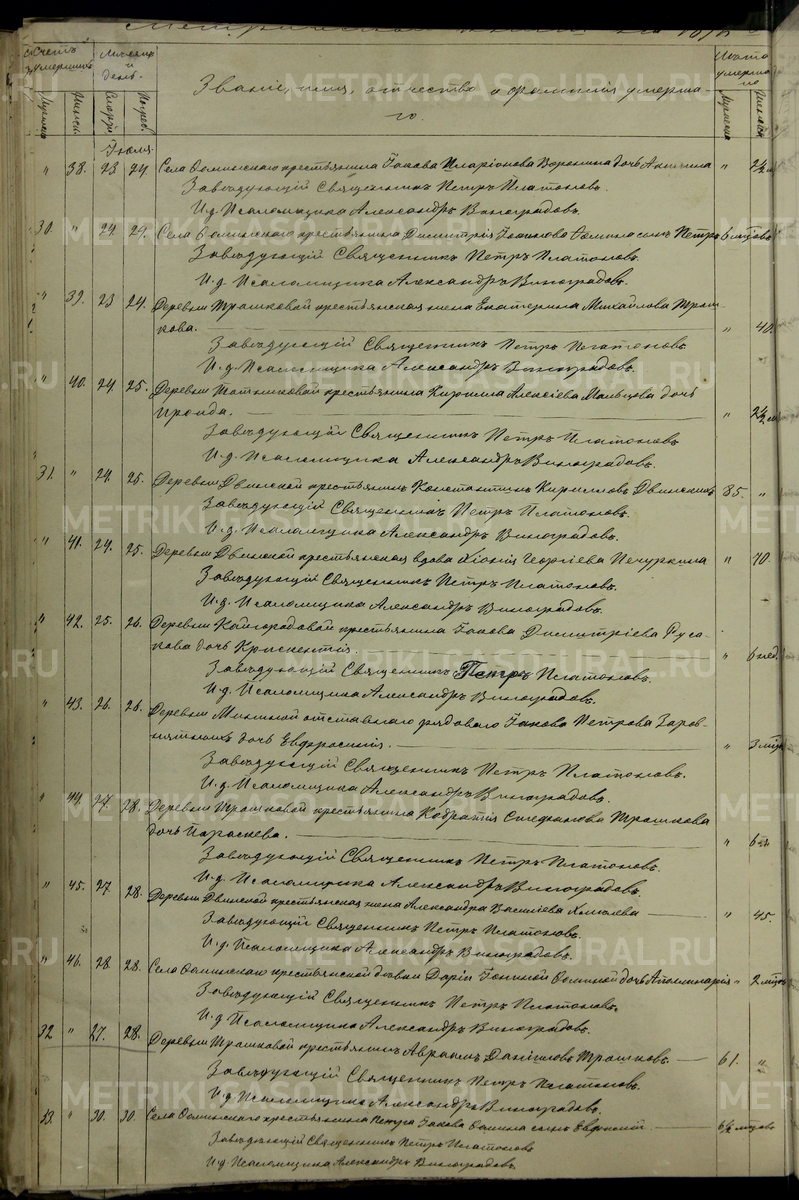 Счетъ умершихъ. Мѣсяцъ и день. Званіе, имя, отчество и фамилія умерша- Лѣта умершаго
го.
Мужеск. Женск. Смерти. Погреб. Мужеска Женска
Іюля
" 38. 23 24. Села Фоминскаго крестьянина Іакова Иларіонова Воронина дочь " 2½ м
Завѣдующій Священникъ Петръ Платоновъ.
И.д. Псаломщика Александръ Виноградовъ.
30. " 24 24. Села Фоминскаго крестьянина Димитрія Фомина сынъ Петръ 6 мцовъ
Завѣдующій Священникъ Петръ Платоновъ.
И.д. Псаломщика Александръ Виноградовъ.
" 39. 23 24. Деревни Трошковой крестьянская жена Екатерина Михайлова Трош-
кова. " 40.
Завѣдующій Священникъ Петръ Платоновъ
И.д. Псаломщика Александръ Виноградовъ.
" 40. 24. 25. Деревни крестьянина Кирилла Алексіева Мальцова дочь
Ираида. " 2½ м
Завѣдующій Священникъ Петръ Платоновъ
И.д. Псаломщика Александръ Виноградовъ.
31. " 24. 25. Деревни Двинской крестьянинъ Константинъ Кирилловъ Двинскихъ 85. "
Завѣдующій Священникъ Петръ Платоновъ.
И.д. Псаломщика Александръ Виноградовъ.
" 41. 24. 25. Деревни Двинской крестьянская вдова Хіонія Георгіева Печуркина " 70.
Завѣдующій Священникъ Петръ Платоновъ.
И.д. Псаломщика Александръ Виноградовъ.
" 42. 25. 26. Деревни Кайгородовой крестьянина Іакова Димитріева Руса-
кова дочь " 6 нед.
Завѣдующій Священникъ Петръ Платоновъ.
И.д. Псаломщика Александръ Виноградовъ.
" 43. 26. 26. Деревни отставнаго рядоваго Іакова Петрова
дочь Евфросинія. " 3 мца
Завѣдующій Священникъ Петръ Платоновъ.
И.д. Псаломщика Александръ Виноградовъ.
" 44. 27. 28. Деревни Трошковой крестьянина Кодратія Стефанова Трошкова
дочь Параскева. " 6
Завѣдующій Священникъ Петръ Платоновъ.
И.д. Псаломщика Александръ Виноградовъ.
" 45. 27. 28. Деревни Двинской крестьянская жена Александра Василіева " 45.
Завѣдующій Священникъ Петръ Платоновъ.
И.д. Псаломщика Александръ Виноградовъ.
" 46. 28 28. Села Фоминскаго крестьянской дѣвки Даріи Іониной Фоминой дочь Аполлинарія " 2 мцовъ
Завѣдующій Священникъ Петръ Платоновъ.
И.д. Псаломщика Александръ Виноградовъ.
32 " 27. 28. Деревни Трошковой крестьянинъ Авраамъ Даніиловъ Трошковъ. 61. "
Завѣдующій Священникъ Петръ Платоновъ.
И.д. Псаломщика Александръ Виноградовъ.
33. " 30. 30. Села Фоминскаго крестьянина Петра Іакова Фомина сынъ Евфимій 6½ мцовъ
Завѣдующій Священникъ Петръ Платоновъ
И.д. Псаломщика Александръ Виноградовъ.
METRIKI.GASO-URAL.RU